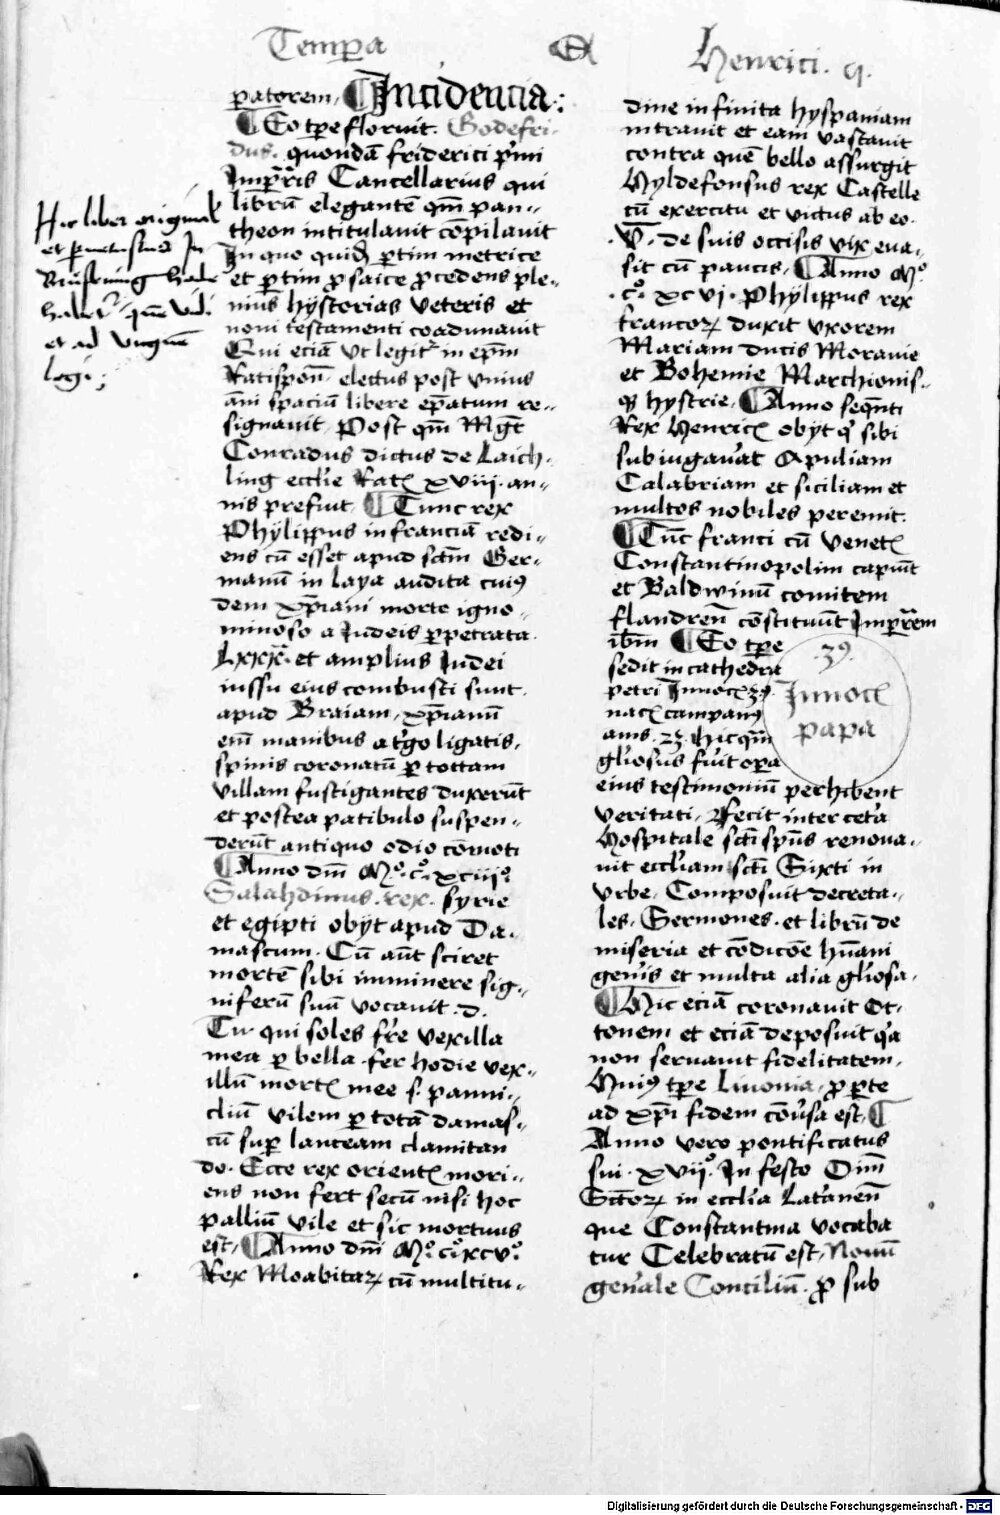 Tempa Et Henrici. q.
patorem. Incidencia.
Eo tpe floruit. Godefri-
dus. quondā friderici p'mi
Impr̄ris Cancellarius qui
librū elegantē qm̄ pan-
theon intitulavit cōpilavit
In quo quid̄ ptim metrice
et ptim prosaice procedens ple-
nius hystorias veteris et
noui testamenti coadunauit
Qui eciā vt legit' in ep̄m
Ratispon̄ electus post vnius
āni spaciū libere ep̄atum re-
signauit. Post qm̄ Mgr̄
Conradus dictus de Laich-
ling eccl'ie Rat xviii. an-
nis prefuit Tunc rex
Phylippus in franciā redi-
ens cū esset apud sctm̄ Ger-
manū in laya audita cui9
dem xp̄iani morte igno-
minoso a Judeis ppetrata.
Lxxx. et amplius Judei
iussu eius combusti sunt.
apud Braiam. xp̄ianū
eni manibus a t'go ligatis.
spinis coronatū p tottam
villam fustigantes duxerūt
et postea patibulo suspen-
derūt antiquo odio cōmoti
Anno dm̄ Mº. cº. xciiiº
Salahdinus. rex. syrie
et egipti obyt apud Da-
mascum. Cū aūt sciret
mortē sibi imminere sig-
niferū suū vocauit. d.
Tu qui soles fr̄e vexilla
mea p bella fer hodie vex-
illū mort mee s. panni-
clīu vilem p totā damas-
cū sup lanceam clamitan
do. Ecce rex orient mori-
ens non fert secū nisi hoc
palliū vile et sic mortuus
est. Anno dm̄ Mº. cº. xcvº.
Rex Moabitaꝝ cū multitu-
Hic liber
et
hab
et ad vnguē
legi;
dine infinita hyspaniam
intrauit et eam vastauit
contra quē bello assurgit
Hyldefonsus rex Castelle
cū exercitu et victus ab eo.
V. de suis occisis vix eua-
sit cū paucis. Anno Mº
cº. xcvj. Phylippus rex
francoꝝ duxit vxorem
Mariam ducis Morauie
et Bohemie Marchionis-
q3 hystrie. Anno seqn̄ti
Rex Henric obyt q' sibi
subiugau'at Apuliam
Calabriam et siciliam et
multos nobiles peremit.
Tūc franci cū venet
Constantinopolim capiūt
et Baldwinū comitem
flandren̄ cōstituūt Impr̄rem
ibm̄ Eo tpe
sedit in cathedra
petri Innoc 39
nac campan9
anis. Hic qm̄
gl'iosus fuit opa
eius testimoniū perhibent
veritati. Fecit inter ceta
Hospitale scti spūs renoua-
uit eccl'iam scti Sixti in
vrbe. Composuit decreta-
les. Sermones. et librū de
miseria et cōdicōe hūani
gen'is et multa alia gl'iosa.
Hic eciā coronauit Ot-
tonem et eciā deposuit q'a
non seruauit fidelitatem.
Hui9 tpe Liuonia. pro pte
ad xp̄i fidem cōu'sa est.
Anno vero pontificatus
sui. xviiº. In festo Oim̄
Sctoꝝ in eccl'ia Lat'anen̄
que Constantina vocaba
tur Celebratū est. Nouū
gen'ale Conciliū. pro sub
.39.
Innoc
papa
Digitalisierung gefördert durch die Deutsche Forschungsgemeinschaft - DFG